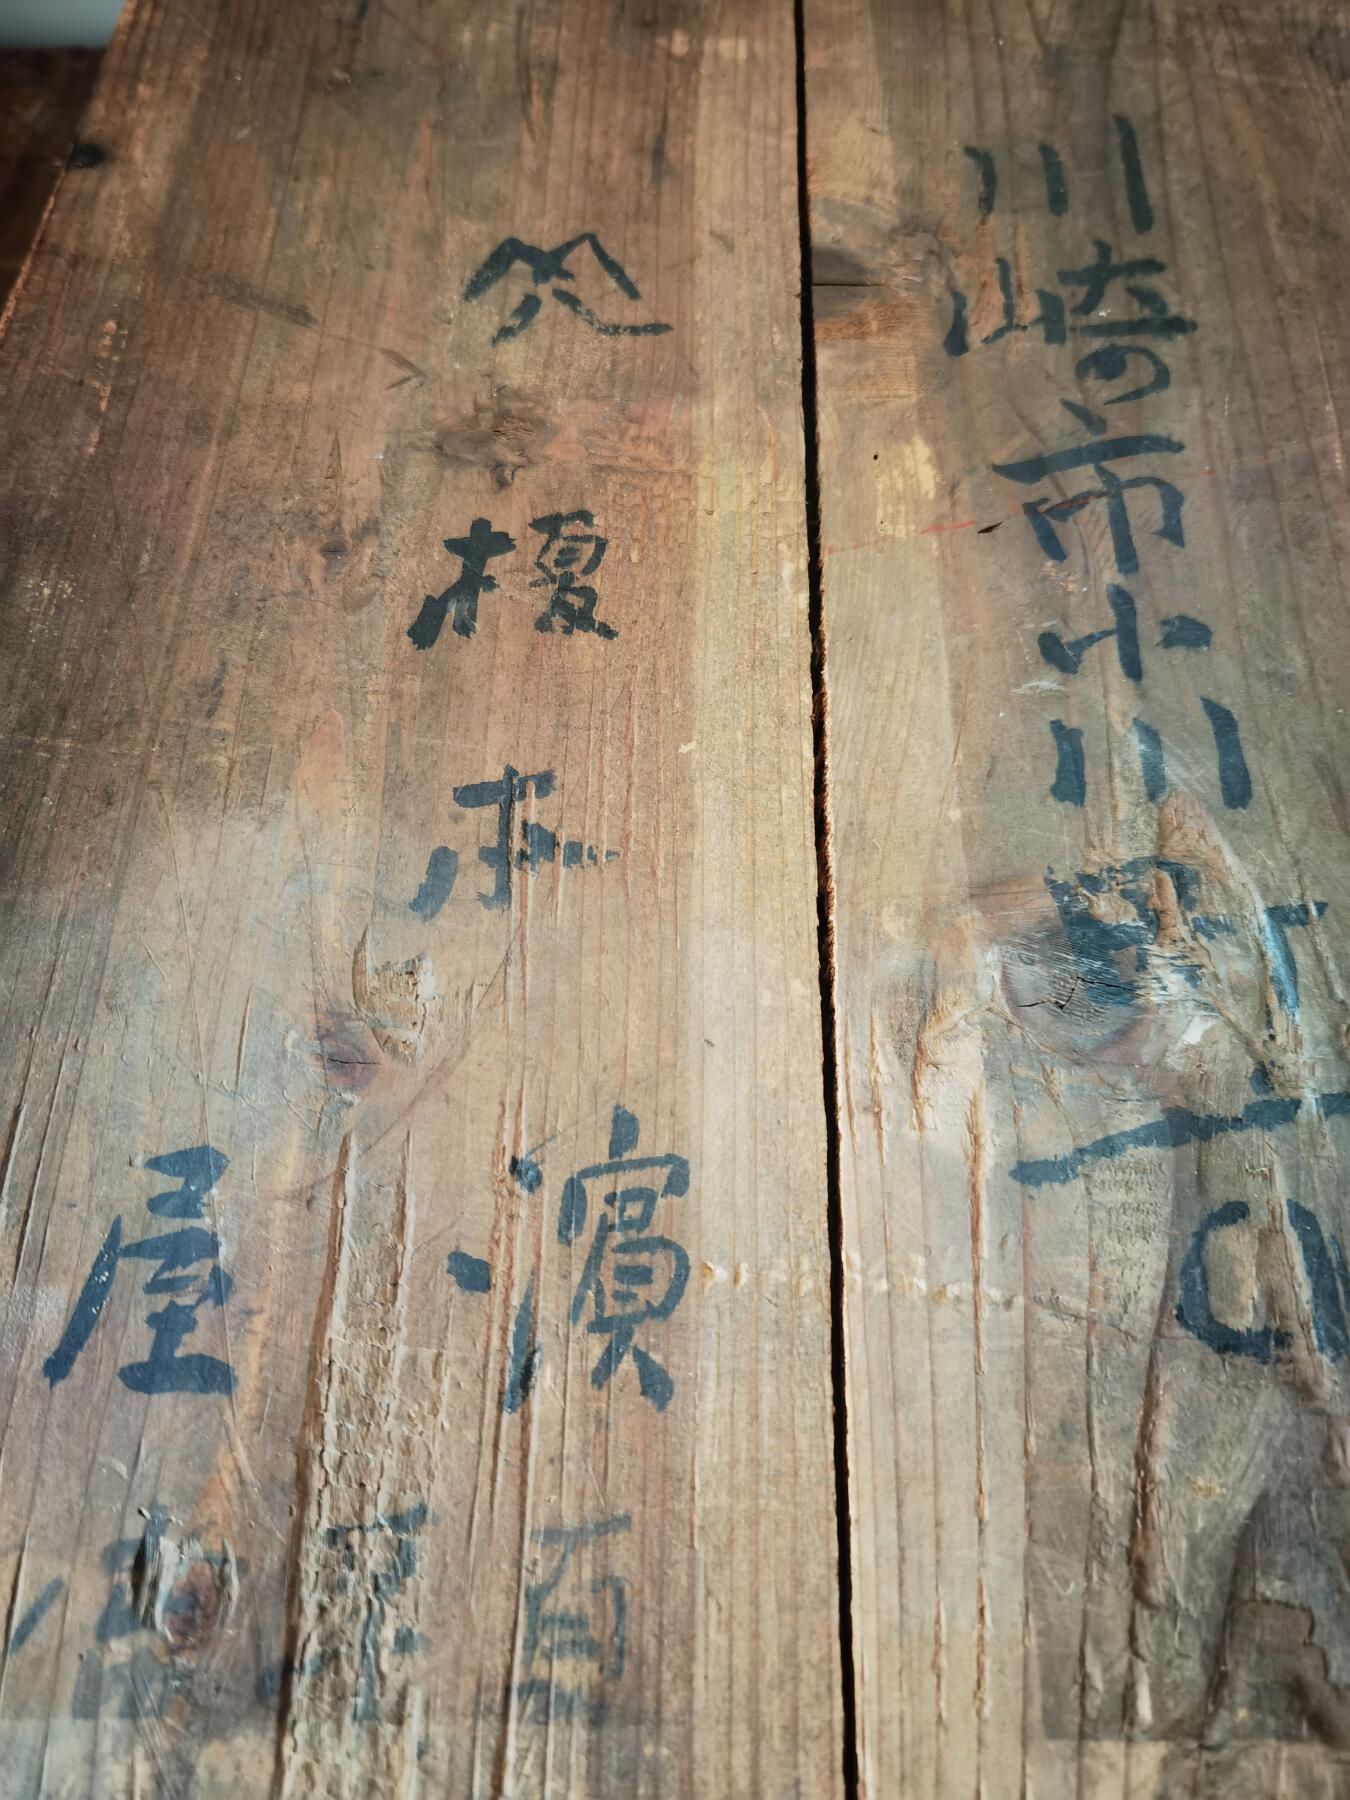 川崎市小川町一〇
榎本
濱
屋
百